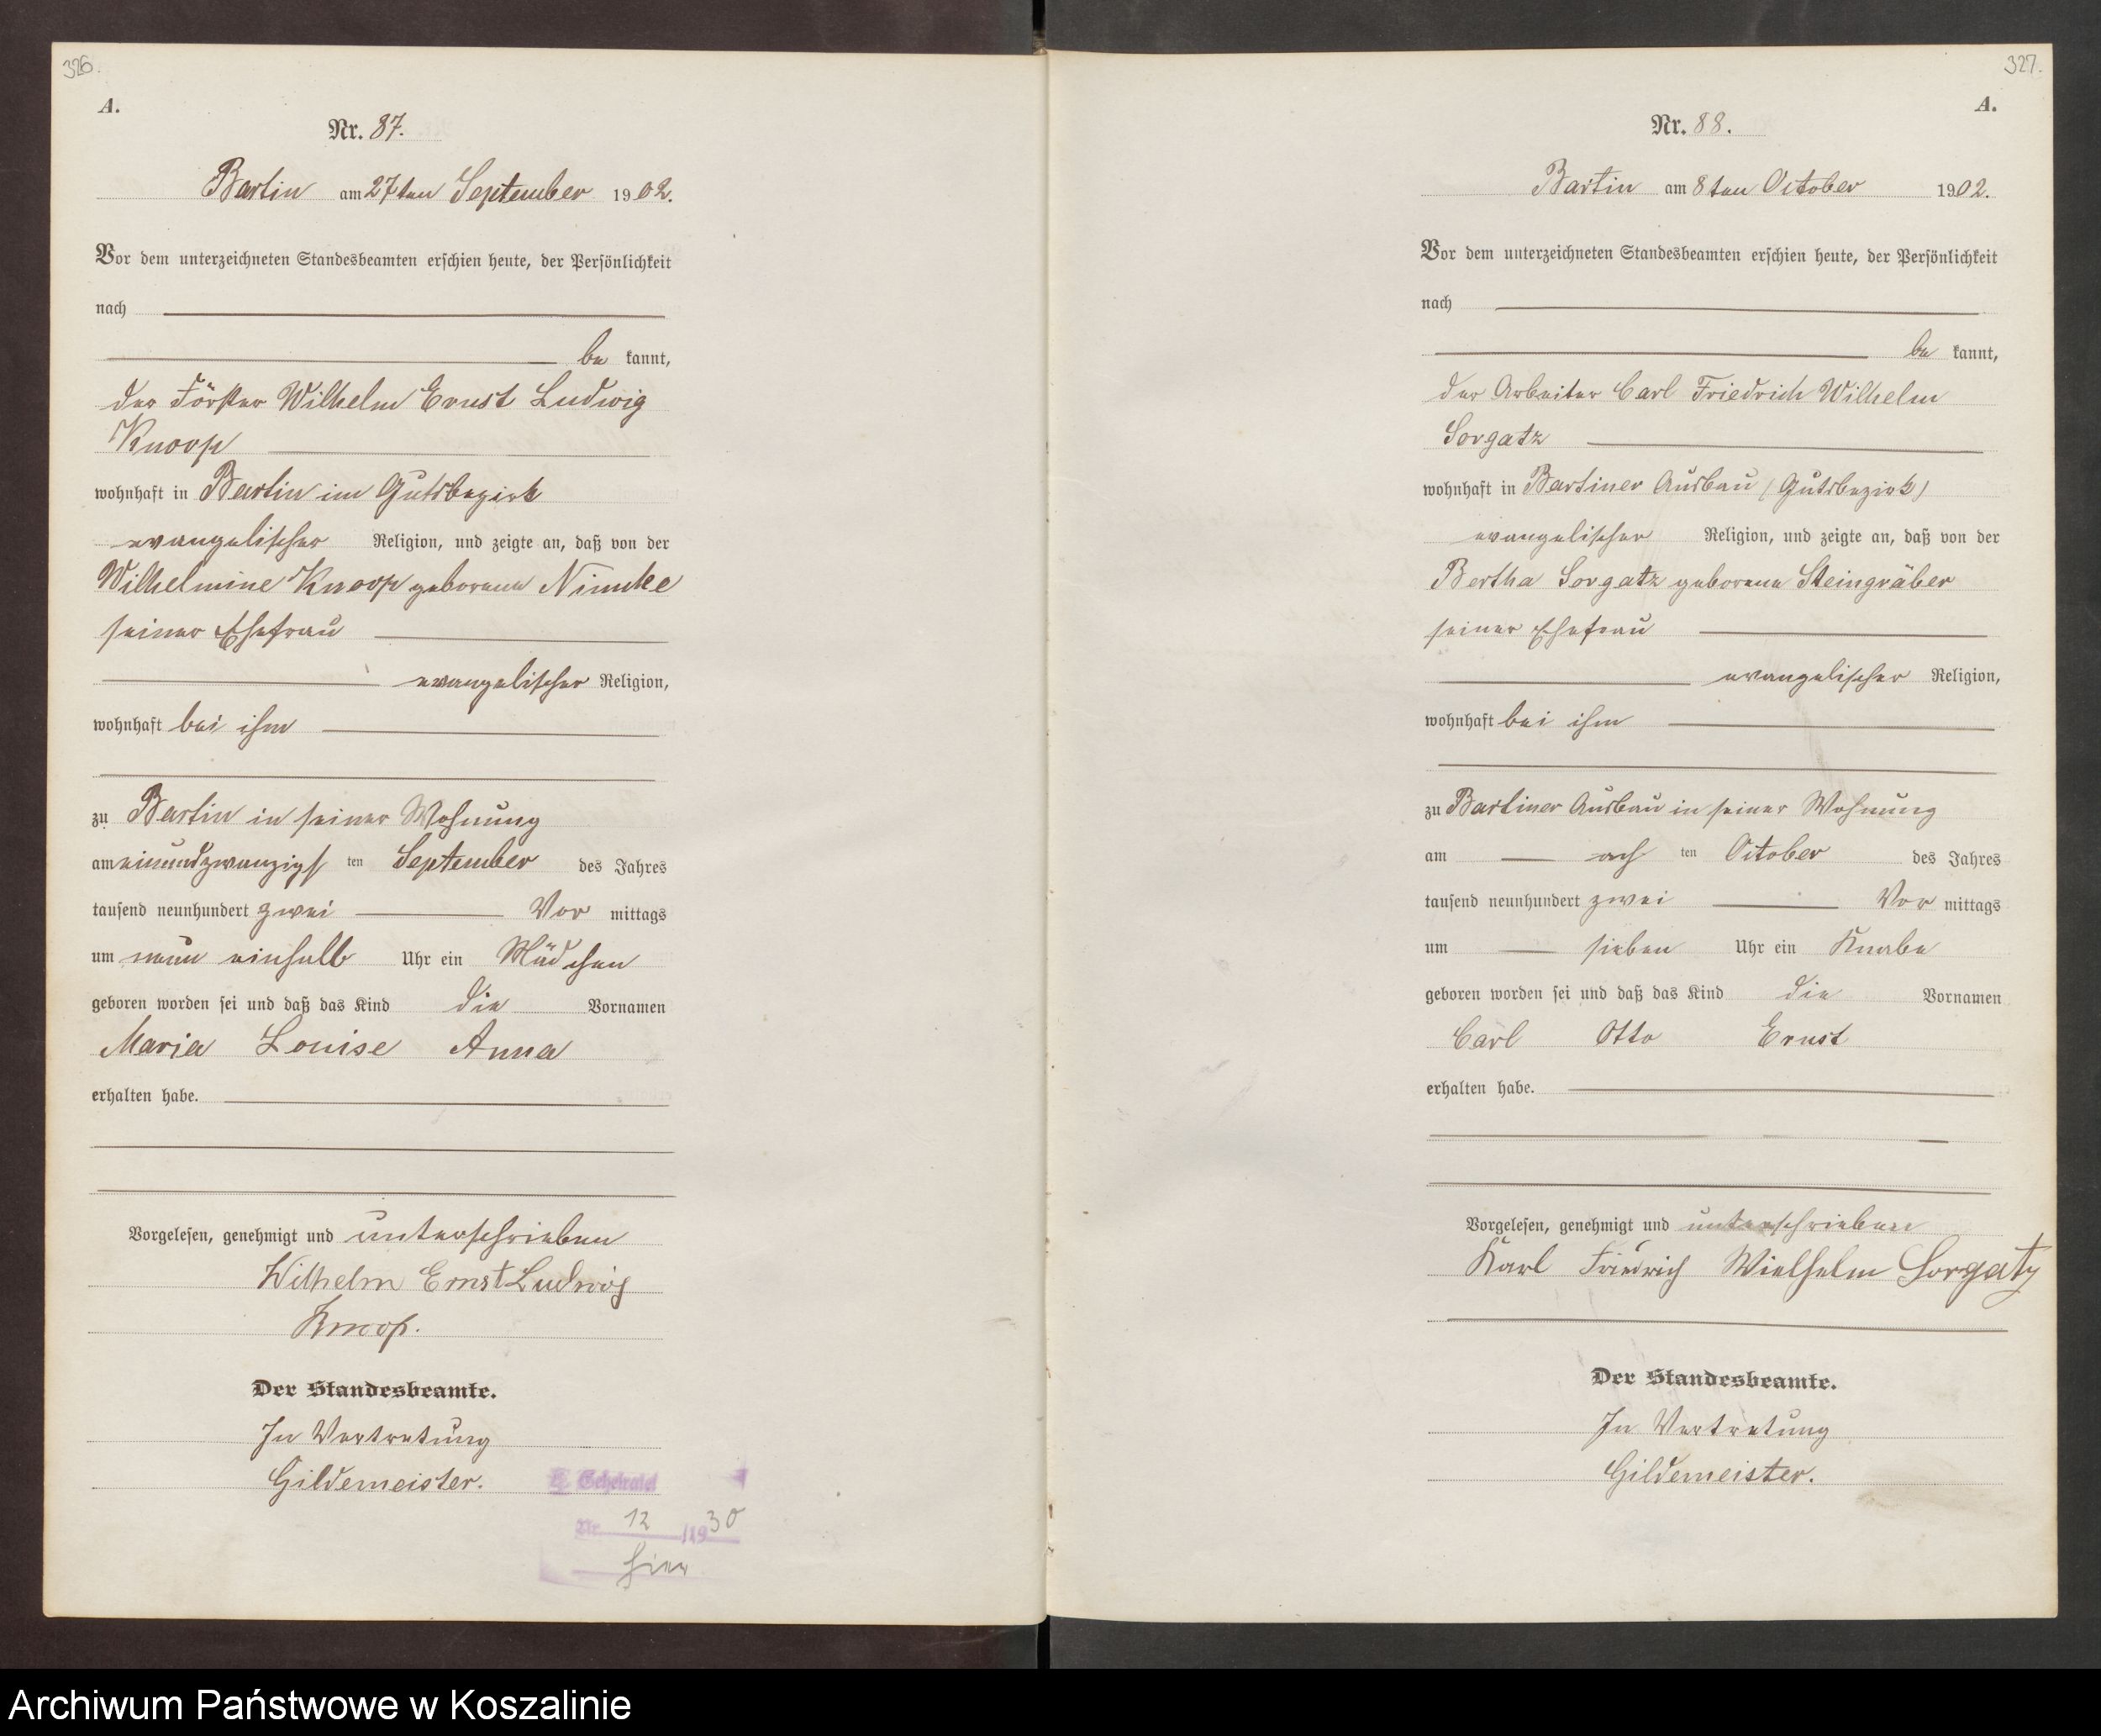 326.
A.
Nr. 87.
Bartin am 27ten September 1902.
Vor dem unterzeichneten Standesbeamten erschien heute, der Persönlichkeit
nach
be kannt,
der Förster Wilhelm Ernst Ludwig
Knoop
wohnhaft in Bartin im Gutsbezirk
evangelischer Religion, und zeigte an, daß von der
Wilhelmine Knoop geborene Nimke
seiner Ehefrau
evangelischer Religion,
wohnhaft bei ihm
zu Bartin in seiner Wohnung
am einundzwanzigs ten September des Jahres
tausend neunhundert zwei Vor mittags
um neun einhalb Uhr ein Mädchen
geboren worden sei und daß das Kind die Vornamen
Maria Louise Anna
erhalten habe.
Vorgelesen, genehmigt und unterschrieben
Wilhelm Ernst Ludwig
Knoop.
Der Standesbeamte.
In Vertretung
Gildemeister.
Geheiratet
Nr. 12 /1930
hier
327.
A.
Nr. 88.
Bartin am 8ten October 1902.
Vor dem unterzeichneten Standesbeamten erschien heute, der Persönlichkeit
nach
be kannt,
der Arbeiter Carl Friedrich Wilhelm
Sorgatz
wohnhaft in Bartiner Ausbau (Gutsbezirk)
evangelischer Religion, und zeigte an, daß von der
Bertha Sorgatz geborene Steingräber
seiner Ehefrau
evangelischer Religion,
wohnhaft bei ihm
zu Bartiner Ausbau in seiner Wohnung
am ach ten October des Jahres
tausend neunhundert zwei Vor mittags
um sieben Uhr ein Knabe
geboren worden sei und daß das Kind die Vornamen
Carl Otto Ernst
erhalten habe.
Vorgelesen, genehmigt und unterschrieben
Karl Friedrich Wielhelm Sorgatz
Der Standesbeamte.
In Vertretung
Gildemeister.
Archiwum Państwowe w Koszalinie